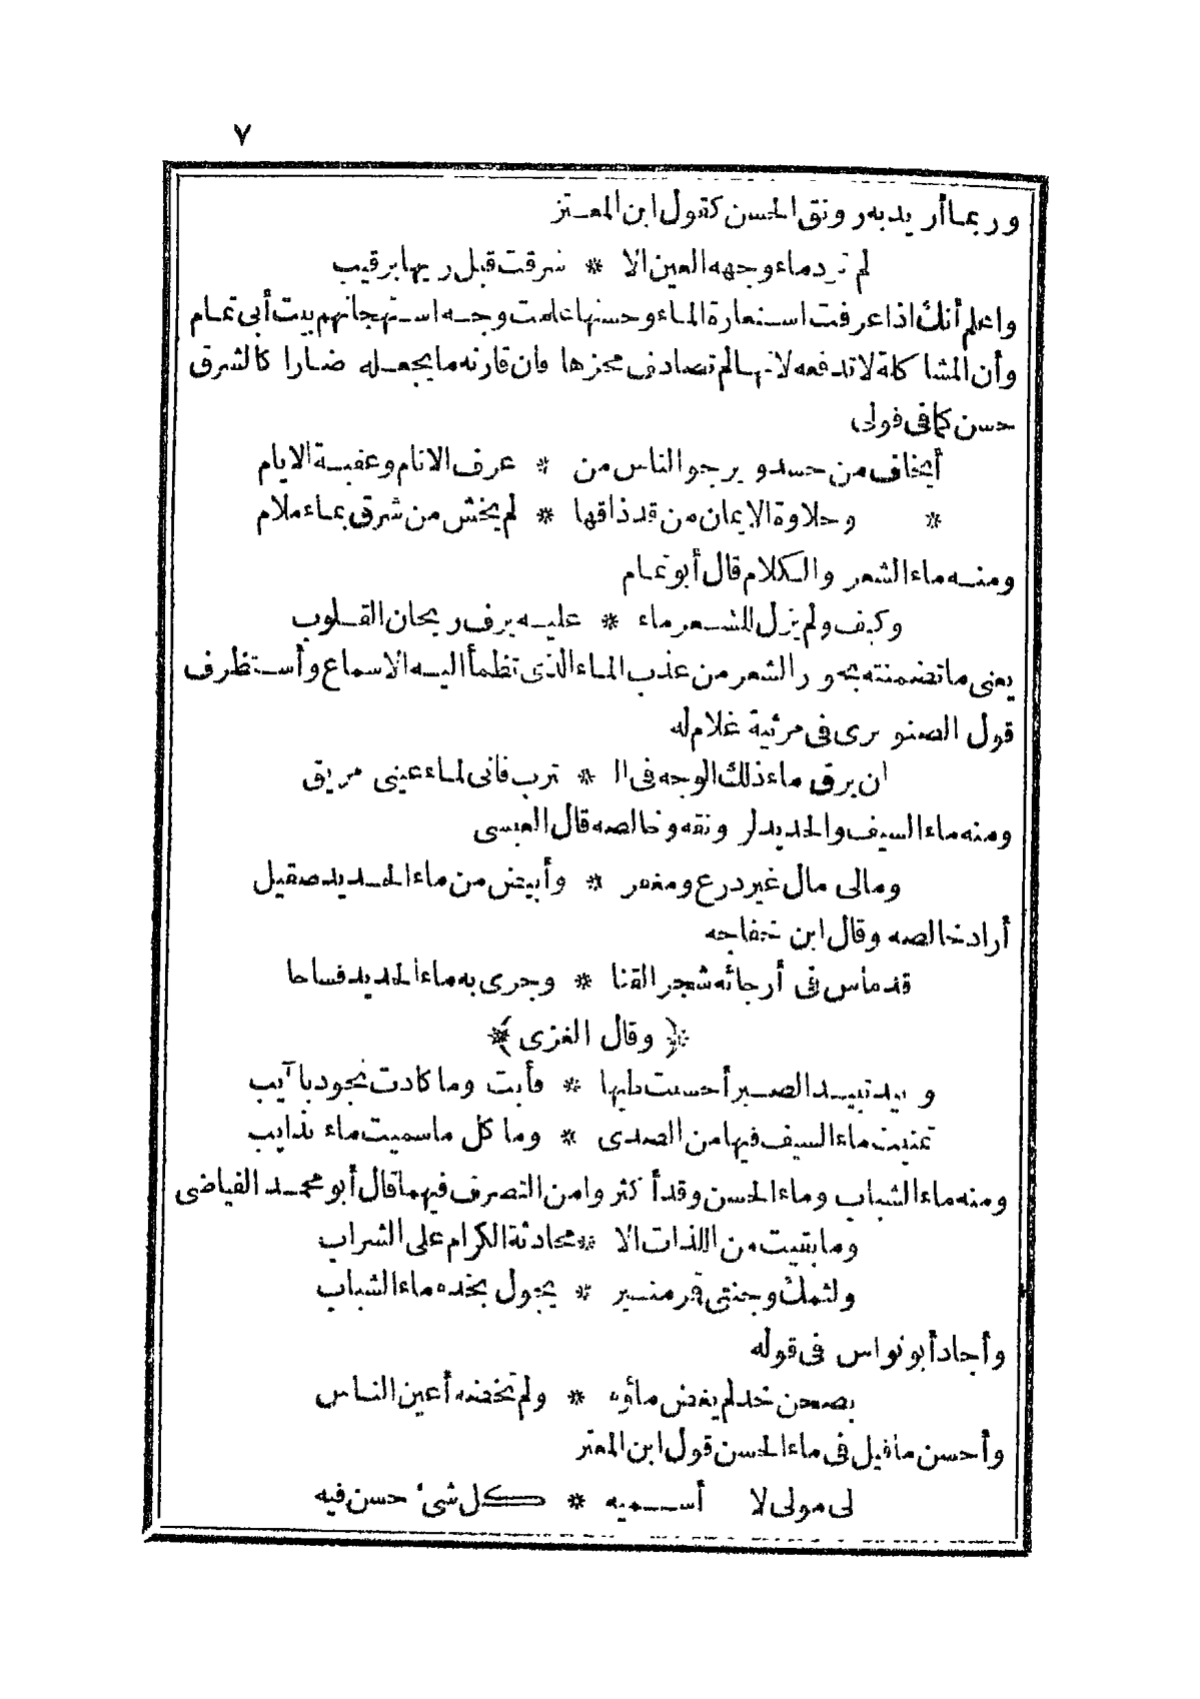 ٧
وربما أريد به رونق الحسن كقول ابن المعتز
لم ترد ماء وجهه العين الا * شرقت قبل ريها برقيب
واعلم أنك اذا عرفت استعارة الماء وحسنها علمت وجه استهجانهم بيت أبى تمام
وأن المشاكلة لا تدفعه لانها لم تصادف محزها فان قارنه ما يجعله ضارا كالشرق
حسن كما فى قولى
أيخاف من حسد ويرجو الناس من * عرف الانام وعفة الايام
* وحلاوة الايمان من قد ذاقها * لم يخش من شرق بماء ملام
ومنه ماء الشعر والكلام قال أبو تمام
وكيف ولم يزل للشعر ماء * عليه يرف ريحان القلوب
يعنى ما تضمنته بحور الشعر من عذب الماء الذى تظمأ اليه الاسماع وأستظرف
قول الصنوبرى فى مرثية غلام له
ان يرق ماء ذلك الوجه فى ال * ترب فانى لماء عينى مريق
ومنه ماء السيف والحديد لرونقه وخالصه قال العبسى
ومالى مال غير درع ومغفر * وأبيض من ماء الحديد صقيل
أراد خالصه وقال ابن خفاجه
قد ماس فى أرجائه شجر القنا * وجرى به ماء الحديد فساحا
﴿ وقال الغزى ﴾
وبيد تبيد الصبر أحسنت طيها * فأبت وما كادت تجود بآيب
تمنيت ماء السيف فيها من الصدى * وما كل ما سميت ماء بذايب
ومنه ماء الشباب وماء الحسن وقد أكثروا من التصرف فيهما قال أبو محمد الفياضى
وما بقيت من اللذات الا * محادثة الكرام على الشراب
ولثمك وجنتى قمر منير * يجول بخده ماء الشباب
وأجاد أبو نواس فى قوله
بصحن خد لم يغض ماؤه * ولم تخضه أعين الناس
وأحسن ما قيل فى ماء الحسن قول ابن المعتز
لى مولى لا أسميه * كل شئ حسن فيه